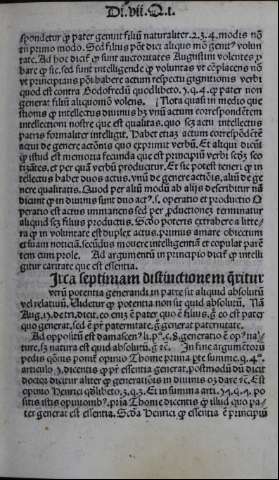 Di. vii. Q. i.
spondetur ꝙ pater genuit filiũ naturaliter. 2. 3. 4. modis nõ
in primo modo. Sed filius põt dici aliquo mõ genit᷒ volun
tate. Ad hoc dicit᷑ ꝙ sunt auctoritates
bare ꝙ sic. sed sunt intelligende ꝙ voluntas vt cõplacens nõ
vt principians põt habere actum respectu gignitionis verbi
quod est contra Godofredũ quodlibeto. 3. q. 4. ꝙ pater non
generat filiũ aliquomõ volens. Nota quasi in medio que
stionis ꝙ intellectus diuinus hʒ vnũ actum correspondẽtem
intellectioni nostre que est qualitas. quo seʒ actu intellectus
patris formaliter intelligit. Habet etiaʒ actum correspõdẽtẽ
actui de genere actionis quo exprimit verbũ. Et aliqui dicũt
ꝙ istud est memoria fecunda que est principiũ verbi
et per quã verbũ producitur. Et sic potest teneri ꝙ in
intellectu habet duos actus. vnũ de genere actiõis, aliũ de ge
nere qualitatis. Quod per aliũ modũ ab alijs describitur nã
dicunt ꝙ in diuinis sunt duo act᷒. s. operatio et productio. O
peratio est actus immanens sed per productionẽ terminatur
aliquid seʒ filius productus. Scdo poteris extrahere a litte
ra ꝙ in voluntate est duplex actus. primus amare obiectum
et suam noticiã. secũdus mouere intelligentiã et copulat parẽ
tem cum prole. Ad argumentũ in principio dicit᷑ ꝙ intelli
gitur caritate que est essentia.
Circa septimam distinctionem q̃ritur
vtrũ potentia generandi in patre sit aliquid absolutũ
vel relatiuũ. Uidetur ꝙ potentia non sit quid absolutũ. Nã
Aug. 15. de tri. dicit. eo enĩʒ ẽ pater quo ẽ filius. g̃ eo est pater
quo generat, sed ẽ pr̃ paternitate, g̃ generat paternitate.
Ad oppositũ est damascen᷒ li. p᷒. c. 8. generatio ẽ op᷒ natu
re, sʒ natura est quid absolutũ, g̃ ꝛc. In fine argumẽtorũ
pedis q̃õnis ponit᷑ opinio Thome prima pte summe. q. 4.
articulo 5. dicentis ꝙ pr̃ essentia generat, postmodũ dicit
doctor dicitur aliter ꝙ generatiõnis in diuinis dare ꝛc. Est
opinio Henrici qdlibeto. 3. q. 3. Et in summa arti. 54. q. 4. po
sitis istis opinionib᷒. prĩa Thome dicentis ꝙ illud quo pa
ter generat est essentia. Scda Henrici ꝙ essentia ẽ principiũ